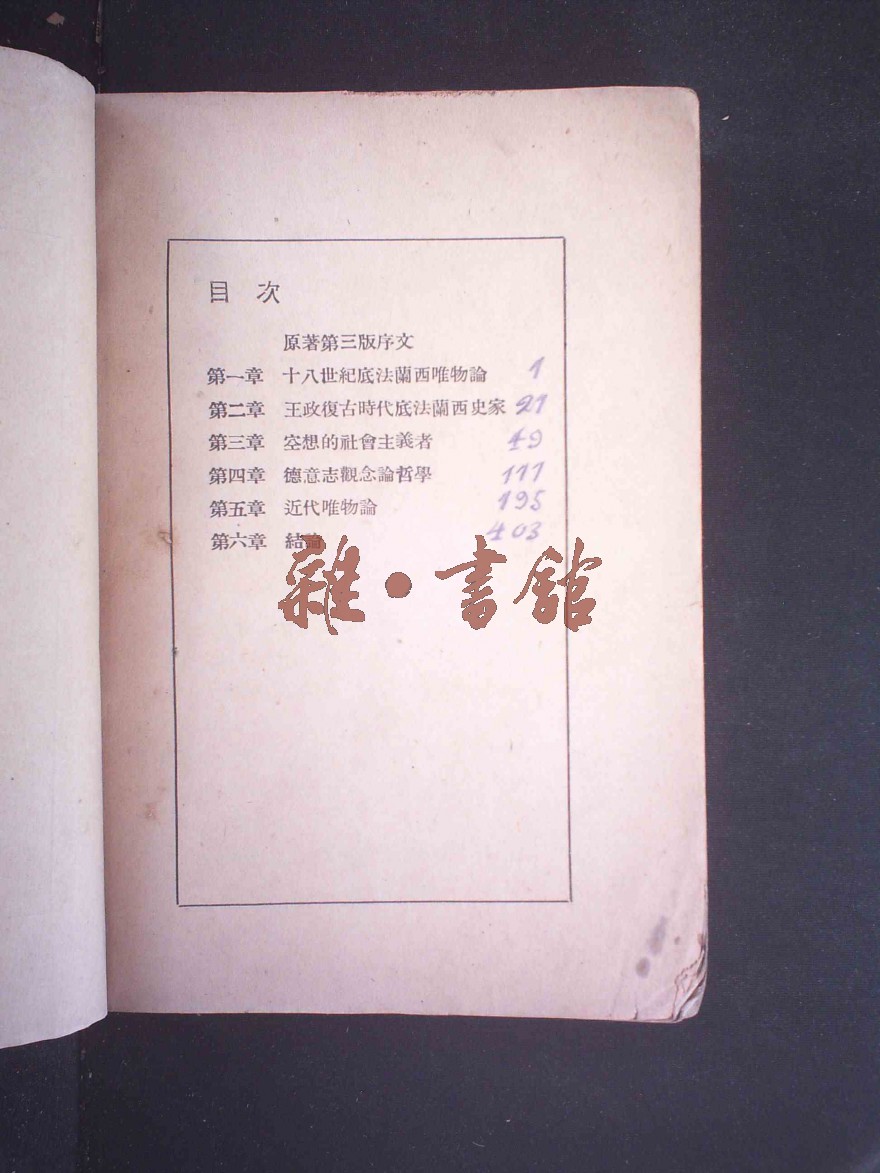 目次
原著第三版序文
第一章 十八世紀底法蘭西唯物論 1
第二章 王政復古時代底法蘭西史家 21
第三章 空想的社會主義者 49
第四章 德意志觀念論哲學 111
第五章 近代唯物論 195
第六章 結論 403
雜·書館